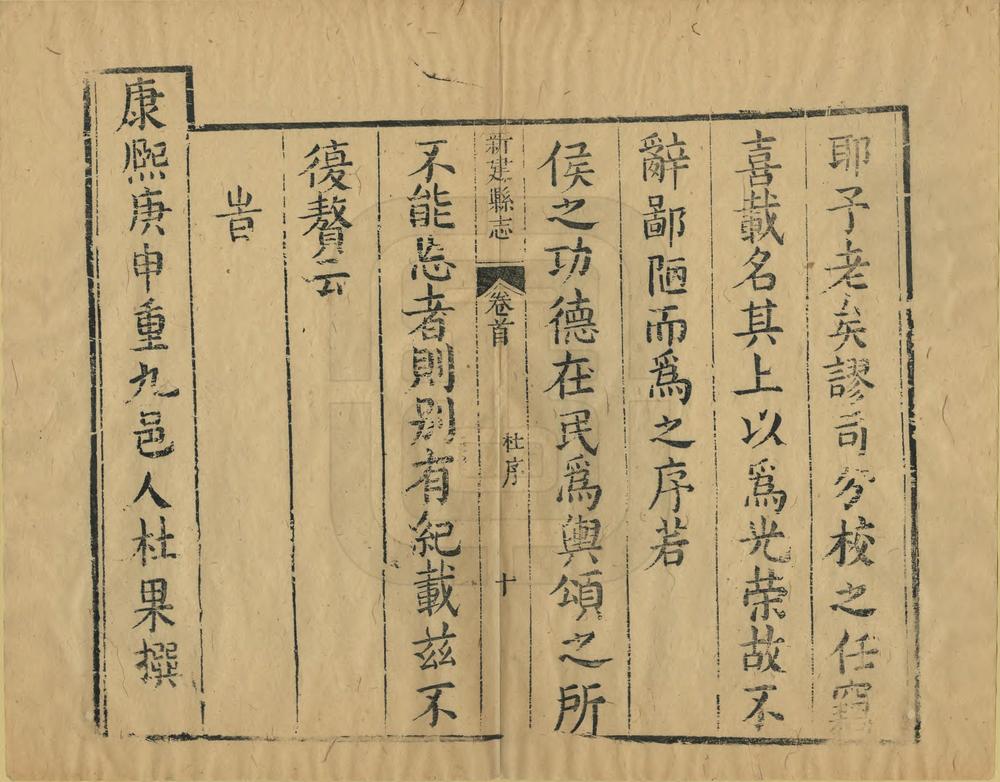 耶予老矣謬司分校之任竊
喜載名其上以爲光荣故不
辭鄙陋而爲之序若
侯之功德在民爲輿頌之所
新建縣志
卷首
杜序
十
不能忘者則别有紀載兹不
復贅云
旹
康熙庚申重九邑人杜果撰